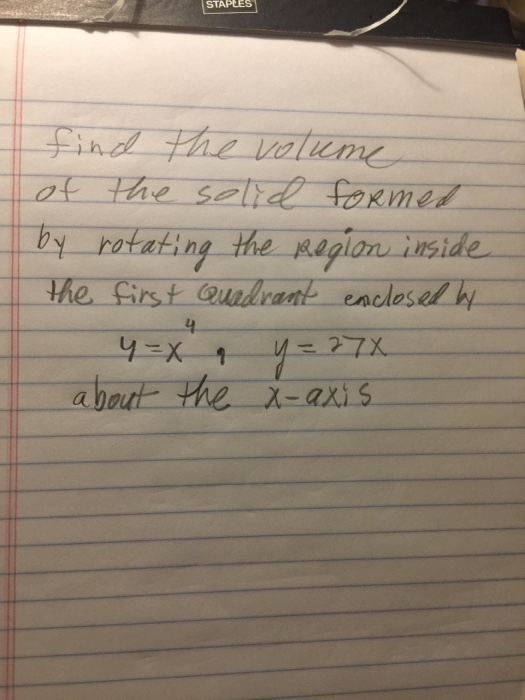 STAPLES
find the volume
of the solid formed
by rotating the region inside
the first Quadrant enclosed by
y=x⁴, y=27x
about the x-axis